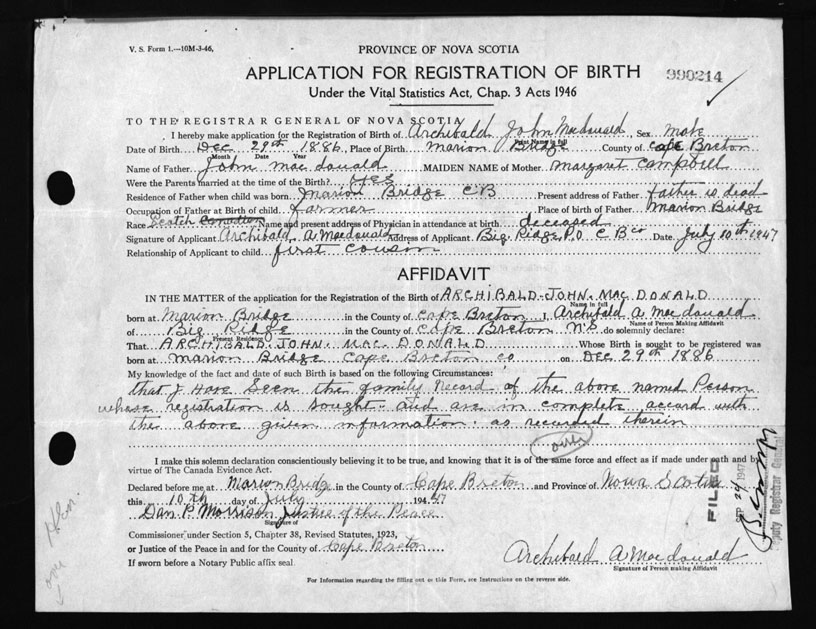 V. S. Form 1.—10M-3-46,
PROVINCE OF NOVA SCOTIA
APPLICATION FOR REGISTRATION OF BIRTH
990214
Under the Vital Statistics Act, Chap. 3 Acts 1946
TO THE REGISTRAR GENERAL OF NOVA SCOTIA
I hereby make application for the Registration of Birth of Archibald John Macdonald, Sex male
Print Name in full
Date of Birth Dec 29th 1886, Place of Birth Marion Bridge County of Cape Breton
Month Date Year
Name of Father John macdonald MAIDEN NAME of Mother margaret Campbell
Were the Parents married at the time of the Birth? Yes
Residence of Father when child was born Marion Bridge CB Present address of Father father is dead
Occupation of Father at Birth of child farmer Place of birth of Father Marion Bridge
Race Scotch Canadian Name and present address of Physician in attendance at birth deceased
Signature of Applicant Archibald A. Macdonald Address of Applicant Big Ridge P.O C B Co Date July 10th 1947
Relationship of Applicant to child first couson
AFFIDAVIT
IN THE MATTER of the application for the Registration of the Birth of ARCHIBALD-JOHN-MAC DONALD
Name in full
born at Marion Bridge in the County of Cape Breton I, Archibald A. Macdonald
Name of Person Making Affidavit
of Big Ridge in the County of Cape Breton N.S do solemnly declare:
Present Residence
That ARCHIBALD-JOHN-MAC DONALD Whose Birth is sought to be registered was
born at Marion Bridge Cape Breton co on DEC 29th 1886
My knowledge of the fact and date of such Birth is based on the following Circumstances:
that I Have Seen the family Record of the above named Person
whose registration is sought. and are in complete accord with
the above given information. as recorded therein
over
I make this solemn declaration conscientiously believing it to be true, and knowing that it is of the same force and effect as if made under oath and by
virtue of The Canada Evidence Act.
Declared before me at Marion Bridge in the County of Cape Breton and Province of Nova Scotia
this 10th day of July 194 47
Dan P. Morrison Justice of the Peace
Signature of
Commissioner under Section 5, Chapter 38, Revised Statutes, 1923,
or Justice of the Peace in and for the County of Cape Breton
If sworn before a Notary Public affix seal.
Archibald A Macdonald
Signature of Person making Affidavit
For Information regarding the filling out of this Form, see Instructions on the reverse side.
FILED
SEP 24 1947
Deputy Registrar General